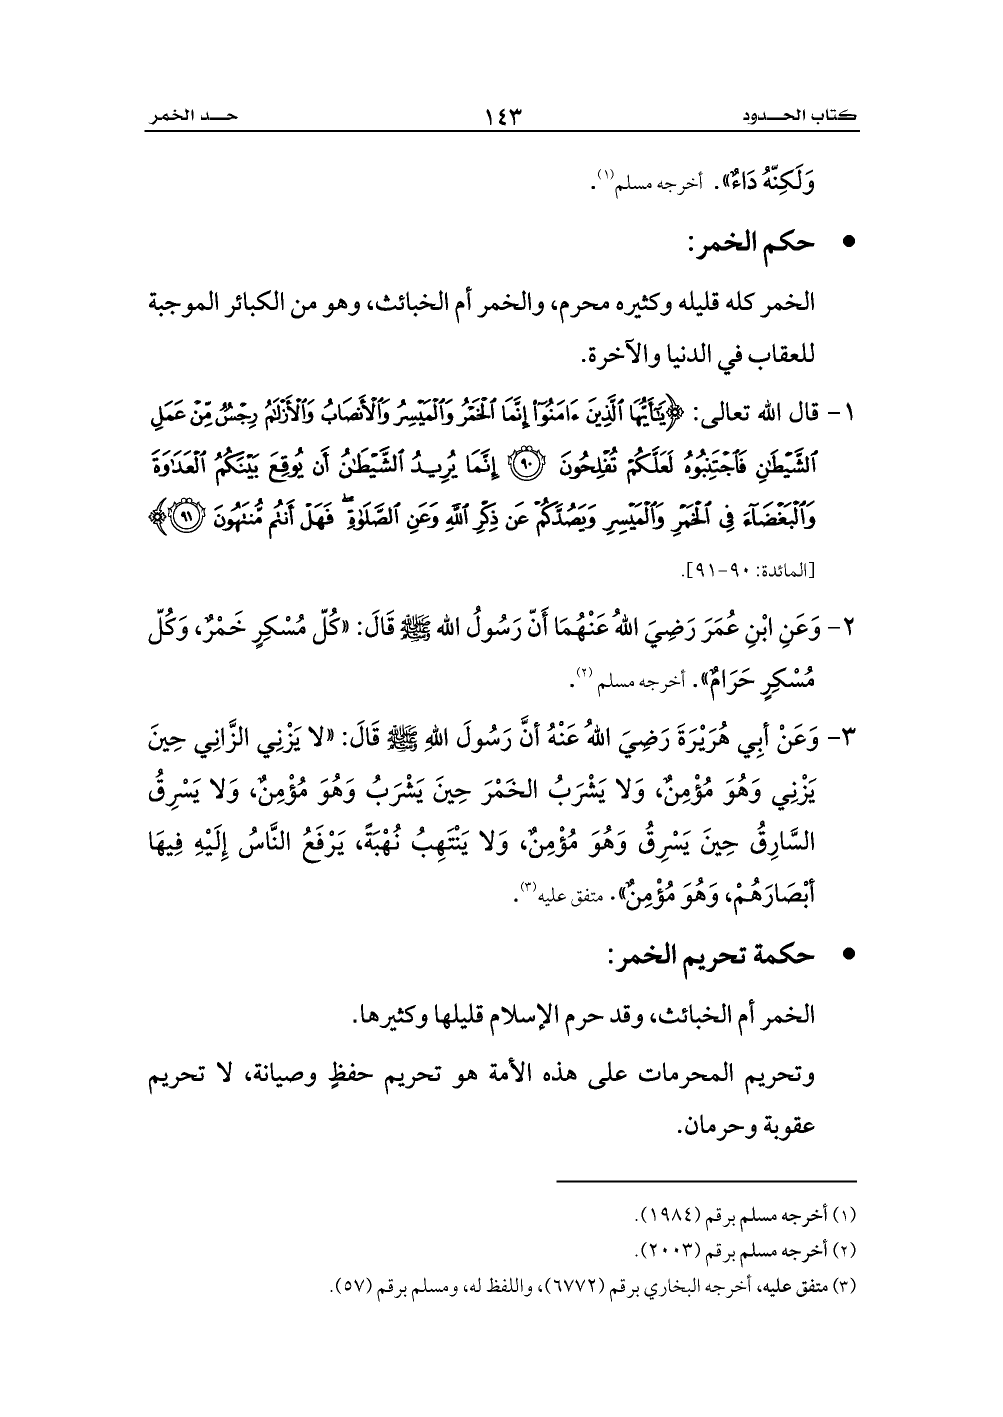 كتاب الحـــدود ١٤٣ حـــد الخمر
وَلَكِنَّهُ دَاءٌ». أخرجه مسلم(١).
• حكم الخمر:
الخمر كله قليله وكثيره محرم، والخمر أم الخبائث، وهو من الكبائر الموجبة
للعقاب في الدنيا والآخرة.
١- قال الله تعالى: ﴿يَٰٓأَيُّهَا ٱلَّذِينَ ءَامَنُوٓا۟ إِنَّمَا ٱلْخَمْرُ وَٱلْمَيْسِرُ وَٱلْأَنصَابُ وَٱلْأَزْلَٰمُ رِجْسٌ مِّنْ عَمَلِ
ٱلشَّيْطَٰنِ فَٱجْتَنِبُوهُ لَعَلَّكُمْ تُفْلِحُونَ ۝٩٠ إِنَّمَا يُرِيدُ ٱلشَّيْطَٰنُ أَن يُوقِعَ بَيْنَكُمُ ٱلْعَدَٰوَةَ
وَٱلْبَغْضَآءَ فِى ٱلْخَمْرِ وَٱلْمَيْسِرِ وَيَصُدَّكُمْ عَن ذِكْرِ ٱللَّهِ وَعَنِ ٱلصَّلَوٰةِ ۖ فَهَلْ أَنتُم مُّنتَهُونَ ۝٩١﴾
[المائدة: ٩٠-٩١].
٢- وَعَنِ ابْنِ عُمَرَ رَضِيَ اللهُ عَنْهُمَا أَنّ رَسُولُ الله ﷺ قَالَ: «كُلّ مُسْكِرٍ خَمْرٌ، وَكُلّ
مُسْكِرٍ حَرَامٌ». أخرجه مسلم (٢).
٣- وَعَنْ أبِي هُرَيْرَةَ رَضِيَ اللهُ عَنْهُ أنَّ رَسُولَ اللهِ ﷺ قَالَ: «لا يَزْنِي الزَّانِي حِينَ
يَزْنِي وَهُوَ مُؤْمِنٌ، وَلا يَشْرَبُ الخَمْرَ حِينَ يَشْرَبُ وَهُوَ مُؤْمِنٌ، وَلا يَسْرِقُ
السَّارِقُ حِينَ يَسْرِقُ وَهُوَ مُؤْمِنٌ، وَلا يَنْتَهِبُ نُهْبَةً، يَرْفَعُ النَّاسُ إِلَيْهِ فِيهَا
أبْصَارَهُمْ، وَهُوَ مُؤْمِنٌ». متفق عليه(٣).
• حكمة تحريم الخمر:
الخمر أم الخبائث، وقد حرم الإسلام قليلها وكثيرها.
وتحريم المحرمات على هذه الأمة هو تحريم حفظٍ وصيانة، لا تحريم
عقوبة وحرمان.
(١) أخرجه مسلم برقم (١٩٨٤).
(٢) أخرجه مسلم برقم (٢٠٠٣).
(٣) متفق عليه، أخرجه البخاري برقم (٦٧٧٢)، واللفظ له، ومسلم برقم (٥٧).